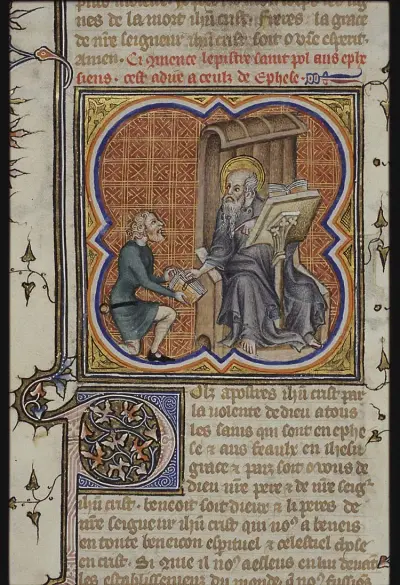 gnes de la mort ihu crist. Freres la grace
de nre seigneur ihu crist soit o vre esperit.
Amen. Ci cmence lepistre saint pol aus ephe
siens. cest adire a ceulz de Ephese.
Polz apostres ihu crist par
la volente de dieu a tous
les sains qui sont en ephe
se & aus feaulx en ihesu
grace & paix soit o vous de
dieu nre pere & de nre seigr
ihu crist. benoit soit dieux & li peres de
nre seigneur ihu crist qui nos a beneis
en toute beneicon espirituel & celestiel
en crist. Si que il nos a esleus en lui devant
les establissemens du monde